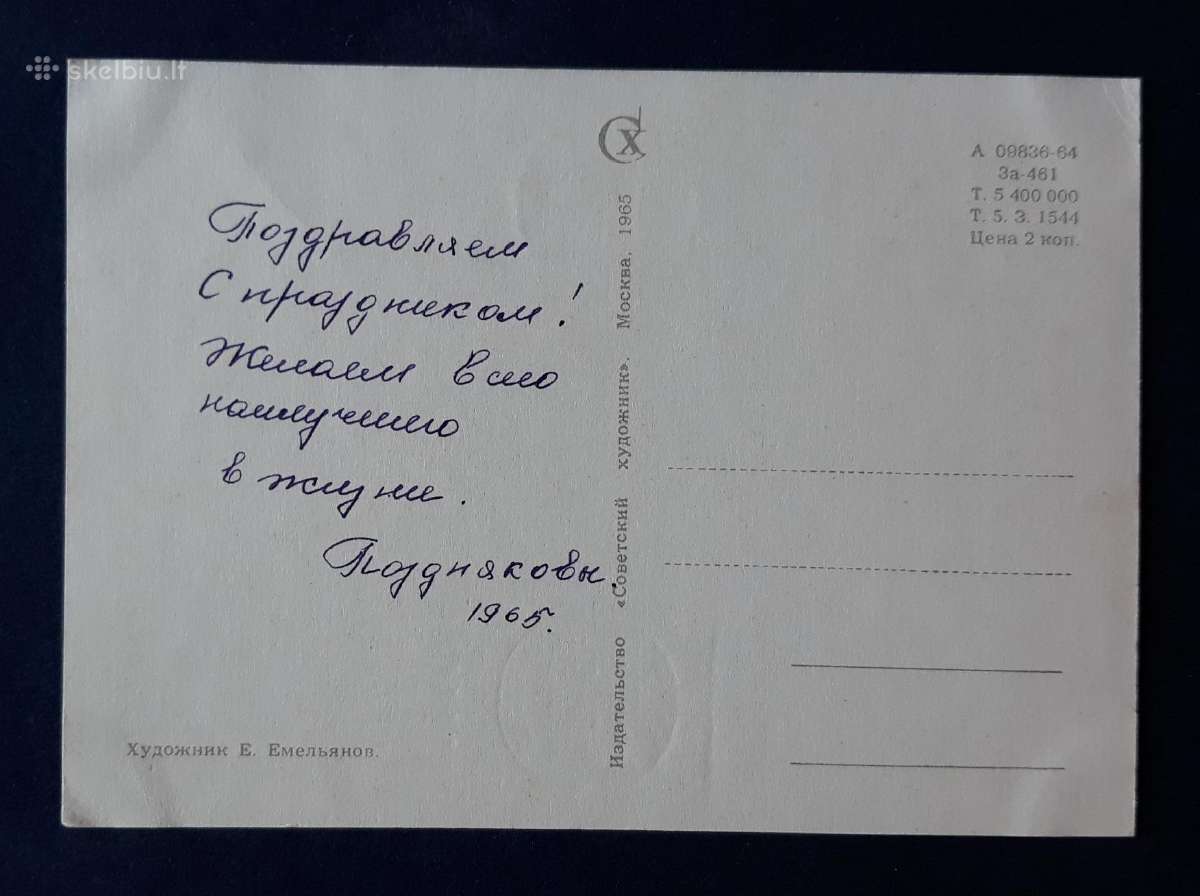 skelbiu.lt
СХ
А 09836-64
За-461
Т. 5 400 000
Т. 5. З. 1544
Цена 2 коп.
Поздравляем
С праздником!
Желаем всего
наилучшего
в жизни.
Поздняковы.
1965.
Издательство «Советский художник». Москва. 1965
Художник Е. Емельянов.